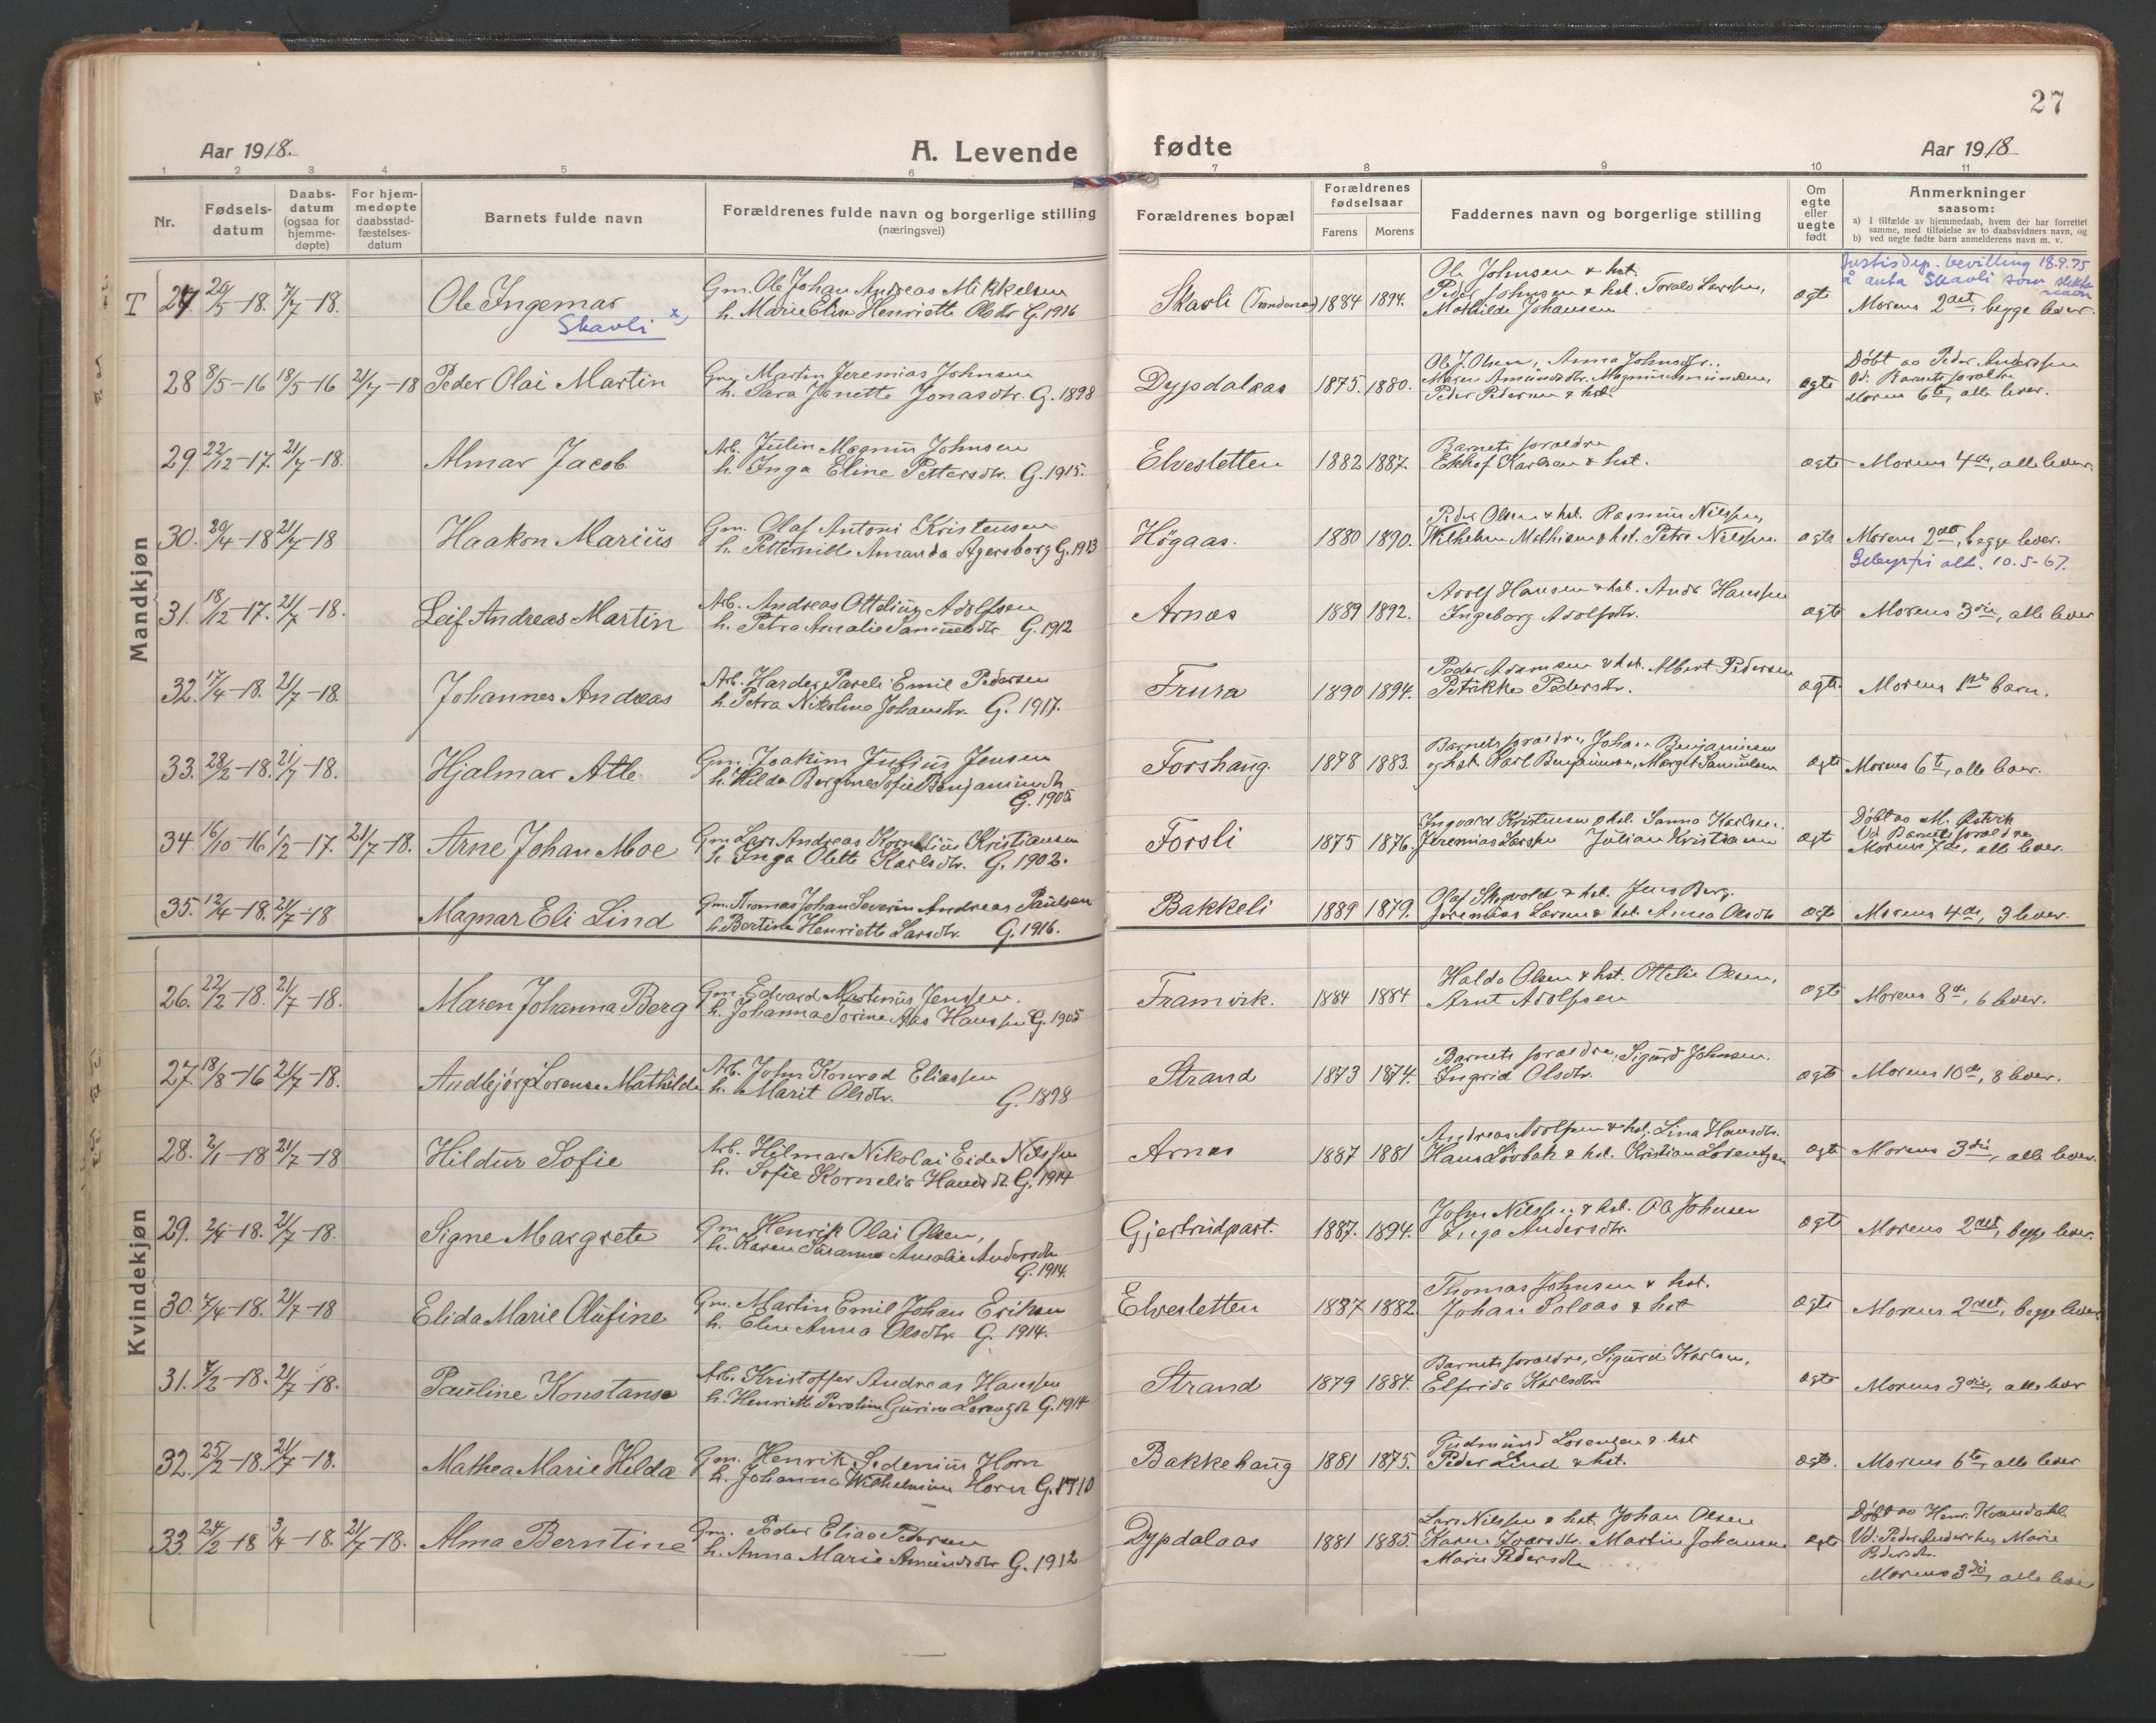 27
Aar 1918. A. Levende fødte Aar 1918
1 2 3 4 5 6 7 8 9 10 11
Nr. Fødsels-datum Daabs-datum (ogsaa for hjemme-døpte) For hjem-medøpte daabsstad-fæstelses-datum Barnets fulde navn Forældrenes fulde navn og borgerlige stilling (næringsvei) Forældrenes bopæl Forældrenes fødselsaar Farens Morens Faddernes navn og borgerlige stilling Om egte eller uegte født Anmerkninger saasom:
a) I tilfælde av hjemmedaab, hvem der har forrettet samme, med tilføielse av to daabsvidners navn, og
b) ved uegte fødte barn anmelderens navn m. v.
Mandkjøn
Justisdep. bevilling 18.9.75
å anta Skavli som slektsnavn
T 27 20/5-18. 7/7-18. Ole Ingemar Skavli x) Gm. Ole Johan Andreas Mikkelsen
h. Marie Elise Henriette Olsdr G. 1916 Skavli (Trondenes) 1884 1894. Ole Johnsen & hst.
Peder Johnsen & hst. Toralv Larssen,
Mathilde Johansen ægte Morens 2det, begge lever.
28 8/5-16 18/5-16 21/7-18 Peder Olai Martin Gm. Martin Jeremias Johnsen
h. Sara Janette Jonasdtr. G. 1898 Dypdalaas 1875. 1880. Ole J. Olsen, Anna Johnsdr.,
Maren Amundsdtr. Magnus Amundsen,
Peder Pedersen & hst. ægte Døbt av Peder Anderssen
Vd: Barnets foraldre
Morens 6te, alle lever.
29 22/12-17. 21/7-18. Almar Jacob Arb. Julin Magnus Johnsen
h. Inga Eline Pettersdtr. G. 1915. Elvesletten 1882 1887. Barnets foraeldre
Karlsen & hst. ægte Morens 4de, alle lever.
30. 20/4-18 21/7-18 Haakon Marius Gm. Olaf Antoni Kristensen
h. Petternille Amanda Agersborg G. 1913 Högaas. 1880 1890. Peder Olsen & hst. Rasmus Nilssen,
Wilhelm Mathisen & hst. Petra Nilssen ægte Morens 2det, begge lever.
10.5-67.
31. 18/12-17. 21/7-18. Leif Andreas Martin Arb. Andreas Ottelius Adolfsen
h. Petra Amalie Samuelsdtr G. 1912 Arnes 1889 1892. Adolf Hansen & hst. Hanssen
Ingeborg Adolfsdtr. ægte Morens 3die, alle lever
32. 17/4-18. 21/7-18. Johannes Andreas Arb. Harder Pareli Emil Pedersen
h. Petra Nikoline Johansdtr. G. 1917. Trura 1890 1894. Peder Adamsen & hst. Albert Pedersen
Petrikke Pedersdtr. ægte. Morens 1ste barn.
33. 28/2-18. 21/7-18. Hjalmar Atle Gm. Joakim Julius Jensen
h. Hilda Bergine Sofie Benjaminsdtr
G. 1905 Forshaug. 1878 1883. Barnets foraeldre, Johan Benjaminsen
& hst. Karl Benjaminsen, Margit Samuelsen ægte Morens 6te, alle lever.
34 16/10-16 1/2-17. 21/7-18. Arne Johan Moe Gm Lars Andreas Kornelius Kristiansen
h. Inga Olette Karlsdtr. G. 1902. Forsli 1875 1876. Ingvard Kristensen & hst. Sanna Karlsen.
Jeremias Larssen Julian Kristiansen ægt Døbt av M. Østvik
Vd. Barnets foraeldre
Morens 7de, alle lever.
35. 12/4-18. 21/7-18 Magnar Eli Lind Gm. Tomas Johan Severin Andreas Paulsen
h. Bertine Henriette Larsdtr. G. 1916. Bakkeli 1889 1879. Olaf Skogvold & hst. Jens Berg.
Jeremias Larsen & hst. Anna Olsdtr ægte Morens 4de, 3 lever.
Kvindekjøn
26. 22/2-18. 21/7-18. Maren Johanna Berg Gm. Edvard Martinus Jenssen.
h. Johanna Sorine Aas Hanssen G. 1905 Framvik. 1884 1884 Haldo Olsen & hst. Ottelie Olsen,
Arnt Adolfsen ægte Morens 8de, 6 lever.
27. 18/8-16 21/7-18. Andbjørg Lorense Mathilde Arb. John Konrad Eliassen
h. Marit Olsdtr. G. 1898 Strand 1873 1874. Barnets foraeldre, Sigurd Johnsen.
Ingrid Olsdtr. ægte Morens 10de, 8 lever.
28. 2/1-18 21/7-18 Hildur Sofie Arb. Hilmar Nikolai Eide Nilssen
h. Sofie Kornelia Hansdtr G. 1914 Arnes 1887 1881 Andreas Adolfsen & hst, Lina Hansdtr.
Hans Lovbak & hst. Kristian Lorentzen ægte Morens 3die, alle lever.
29. 2/4-18. 21/7-18. Signe Margrete Gm. Henrik Olai Olsen,
h. Karen Susanna Amalie Andersdtr
G. 1914. Gjertrudpart. 1887. 1894. John Nilssen & hst. Ole Johnsen
Inga Andersdtr. ægte Morens 2det, begge lever.
30. 7/4-18. 21/7-18 Elida Marie Olufine Gm. Martin Emil Johan Eriksen
h. Elen Anna Olsdtr. G. 1914. Elvesletten 1887 1882. Thomas Johnsen & hst.
Johan Salaas & hst ægte Morens 2det, begge lever
31. 7/2-18. 21/7-18. Pauline Konstanse Arb. Kristoffer Andreas Hanssen
h. Henriette Peroline Gurine Lorentzdtr G. 1914 Strand 1879 1884. Barnets foraeldre, Sigurd Karlsen,
Elfrida Karlsdtr ægte Morens 3die, alle lever
32. 25/2-18. 21/7-18. Mathea Marie Hilda Gm. Henrik Sedenius Horn
h. Johanna Wilhelmine Horn G. 1910 Bakkehaug 1881 1875. Gudmund Lorentzen & hst
Peder Lind & hst. ægte. Morens 6te, alle lever
33. 24/2-18 3/4-18. 21/7-18. Alma Berntine Gm. Peder Elias Pedersen
h. Anna Marie Amundsdtr G. 1912 Dypdalaas 1881 1885. Lars Nilssen & hst. Johan Olsen
Karen Ivarsdtr. Martin Johansen
Marie Pedersdtr ægte Døbt av Henr. Kvandahl
Vd: Peder Anderssen, Marie
Pedersdtr.
Morens 3die, alle lever